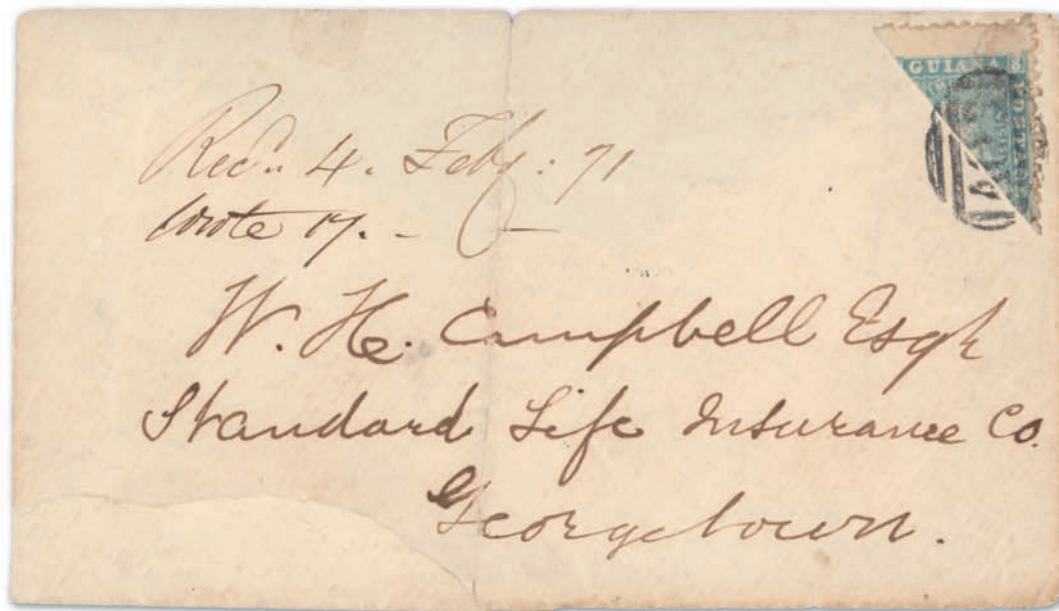 GUIANA 8
Recd. 4. Feby: 71
Wrote 17. -
W. H. Campbell Esqr
Standard Life Insurance Co.
Georgetown.